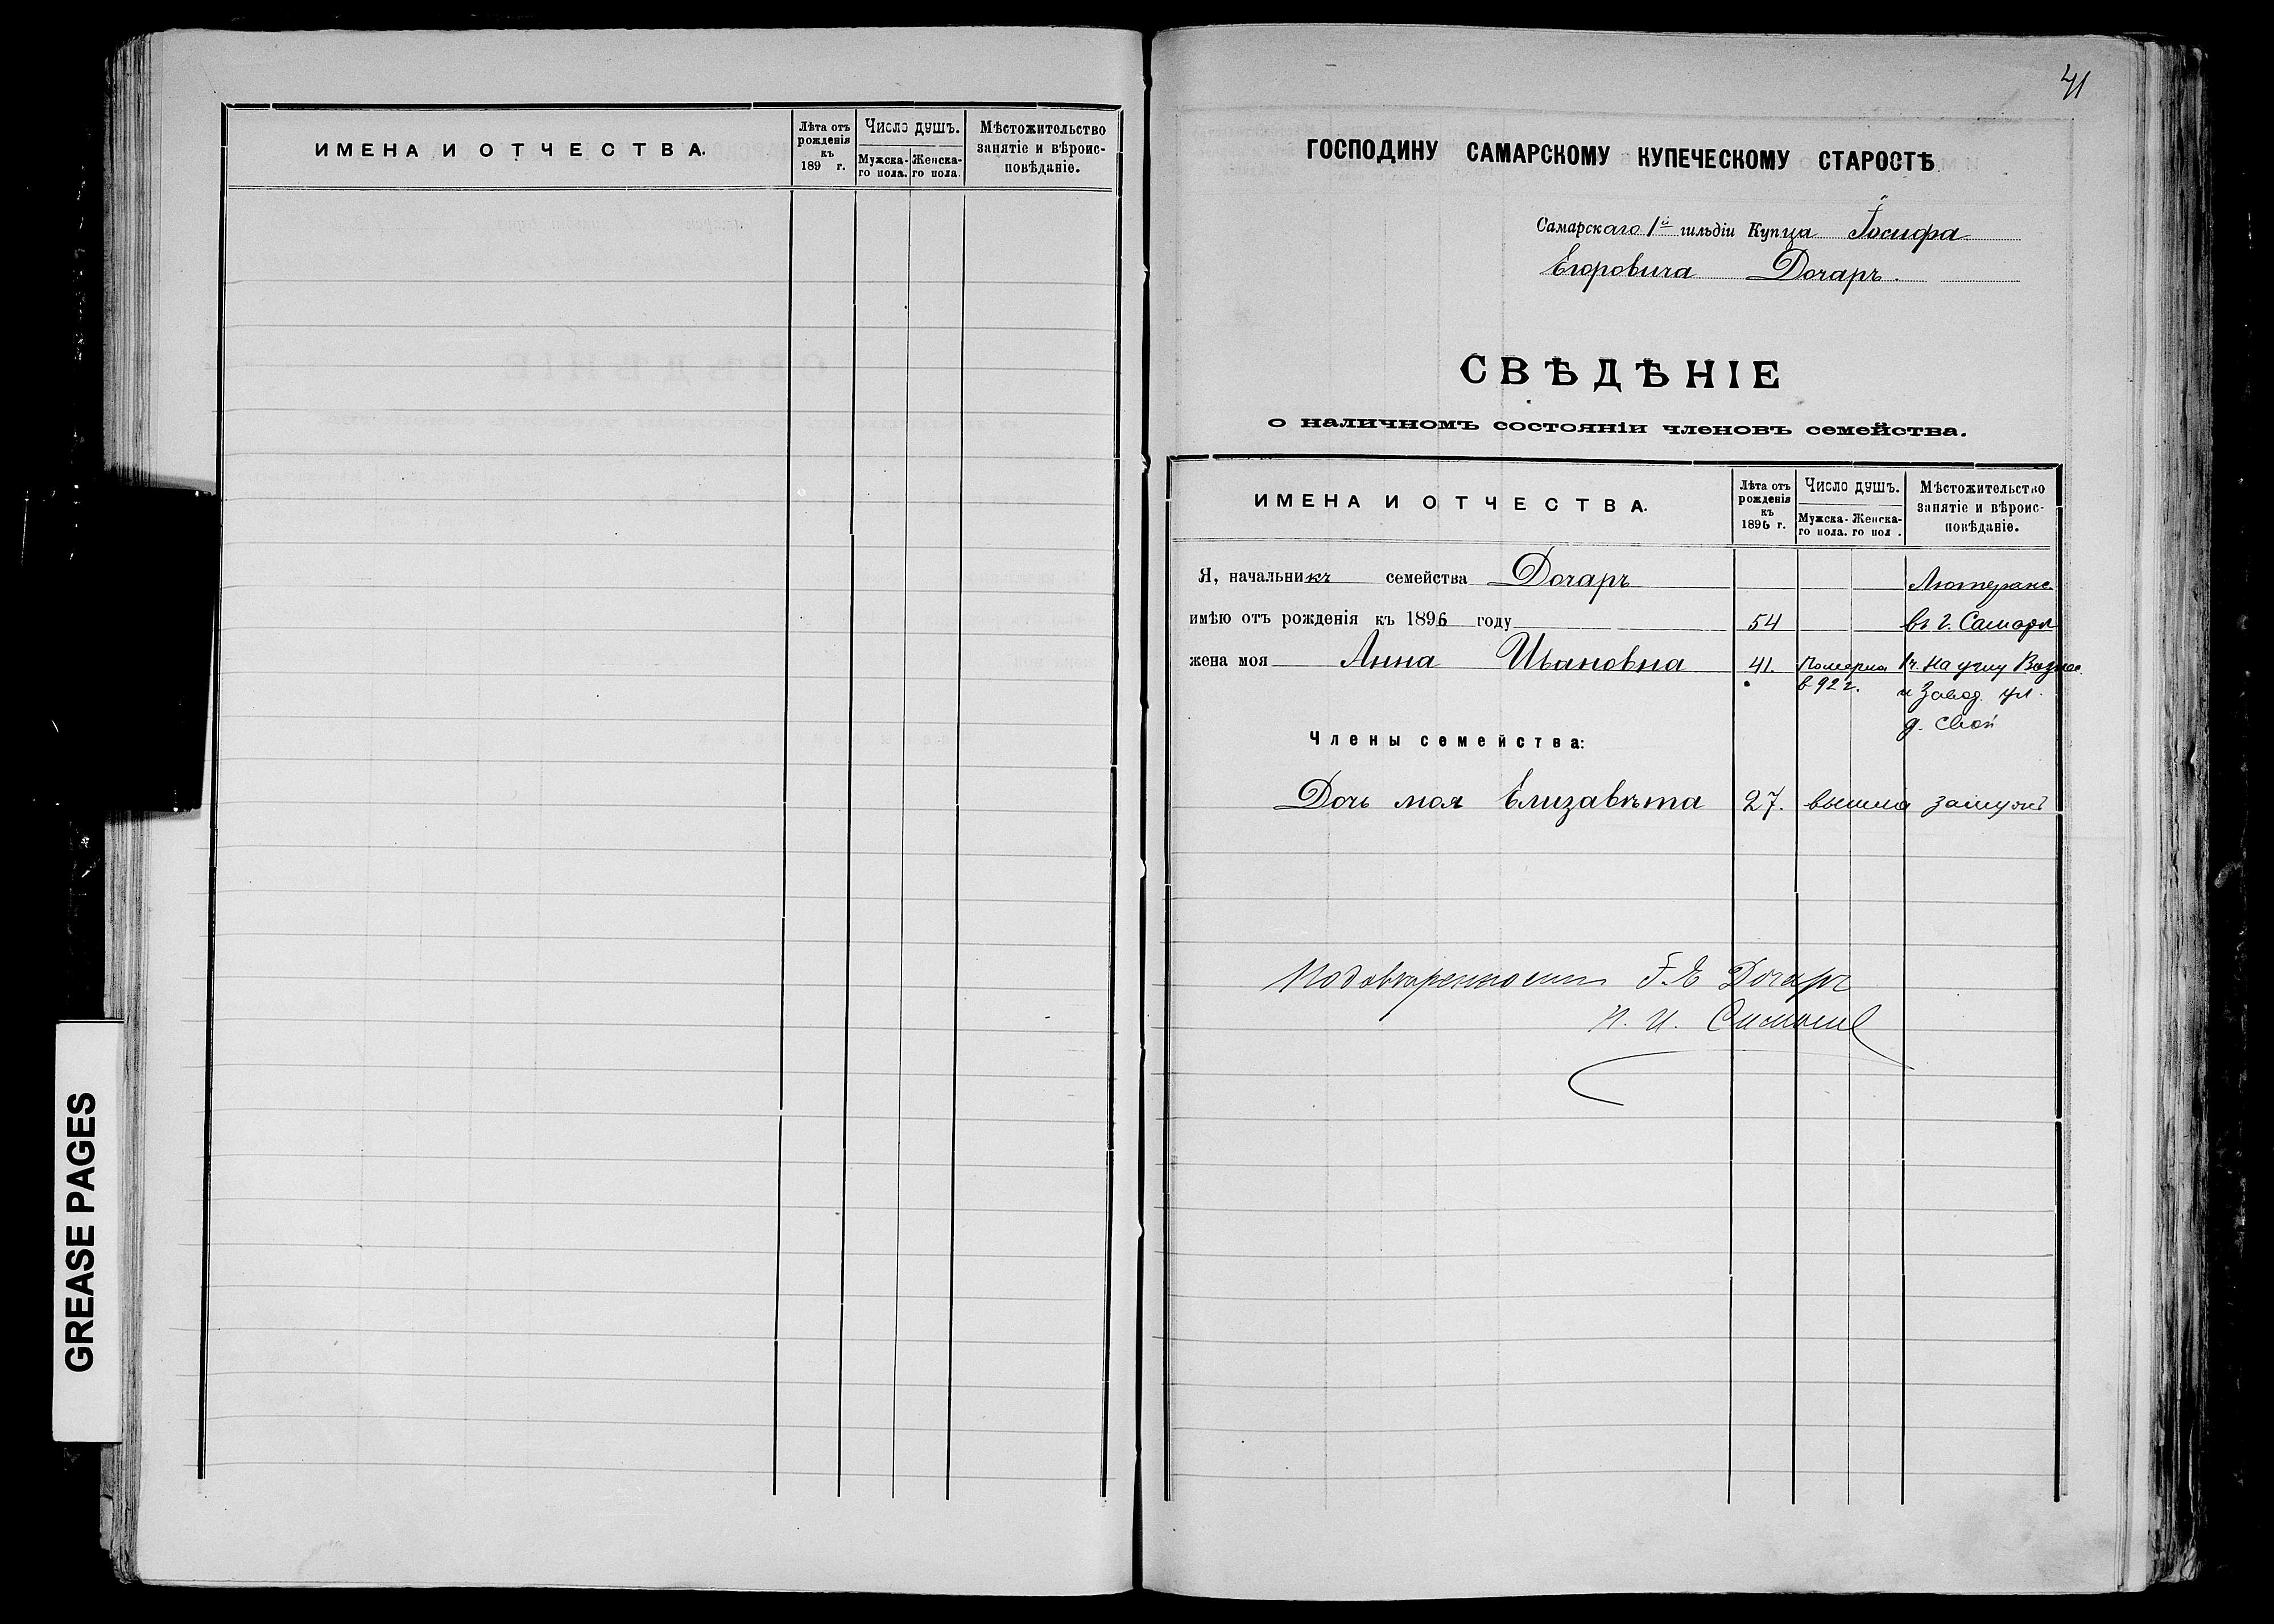 ИМЕНА И ОТЧЕСТВА.
Лѣта отъ рожденія къ 189 г.
Число душъ.
Мужска-го пола.
Женска-го пола.
Мѣстожительство занятіе и вѣроис-повѣданіе.
GREASE PAGES
41
ГОСПОДИНУ САМАРСКОМУ КУПЕЧЕСКОМУ СТАРОСТѢ
Самарскаго 1й гильдіи Купца Іосифа
Егоровича Дочаръ.
СВѢДѢНІЕ
о наличномъ состояніи членовъ семейства.
ИМЕНА И ОТЧЕСТВА.
Лѣта отъ рожденія къ 1896 г.
Число душъ.
Мужска-го пола.
Женска-го пол .
Мѣстожительство занятіе и вѣроис-повѣданіе.
Я, начальникъ семейства Дочаръ Лютеранс.
имѣю отъ рожденія къ 1896 году 54 въ г. Самарѣ
жена моя Анна Ивановна 41. Померла в 92 г. 1ч. на углу Вознес.
и Завод. ул.
д. свой
Члены семейства:
Дочь моя Елизавѣта 27. вышла замужъ
По довѣренности І. Е Дочаръ